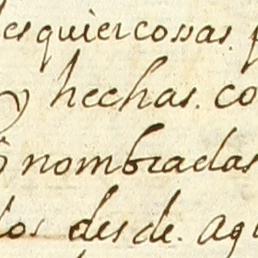 esquier cossas.
y hechas. co
nombradas
los desde. aq